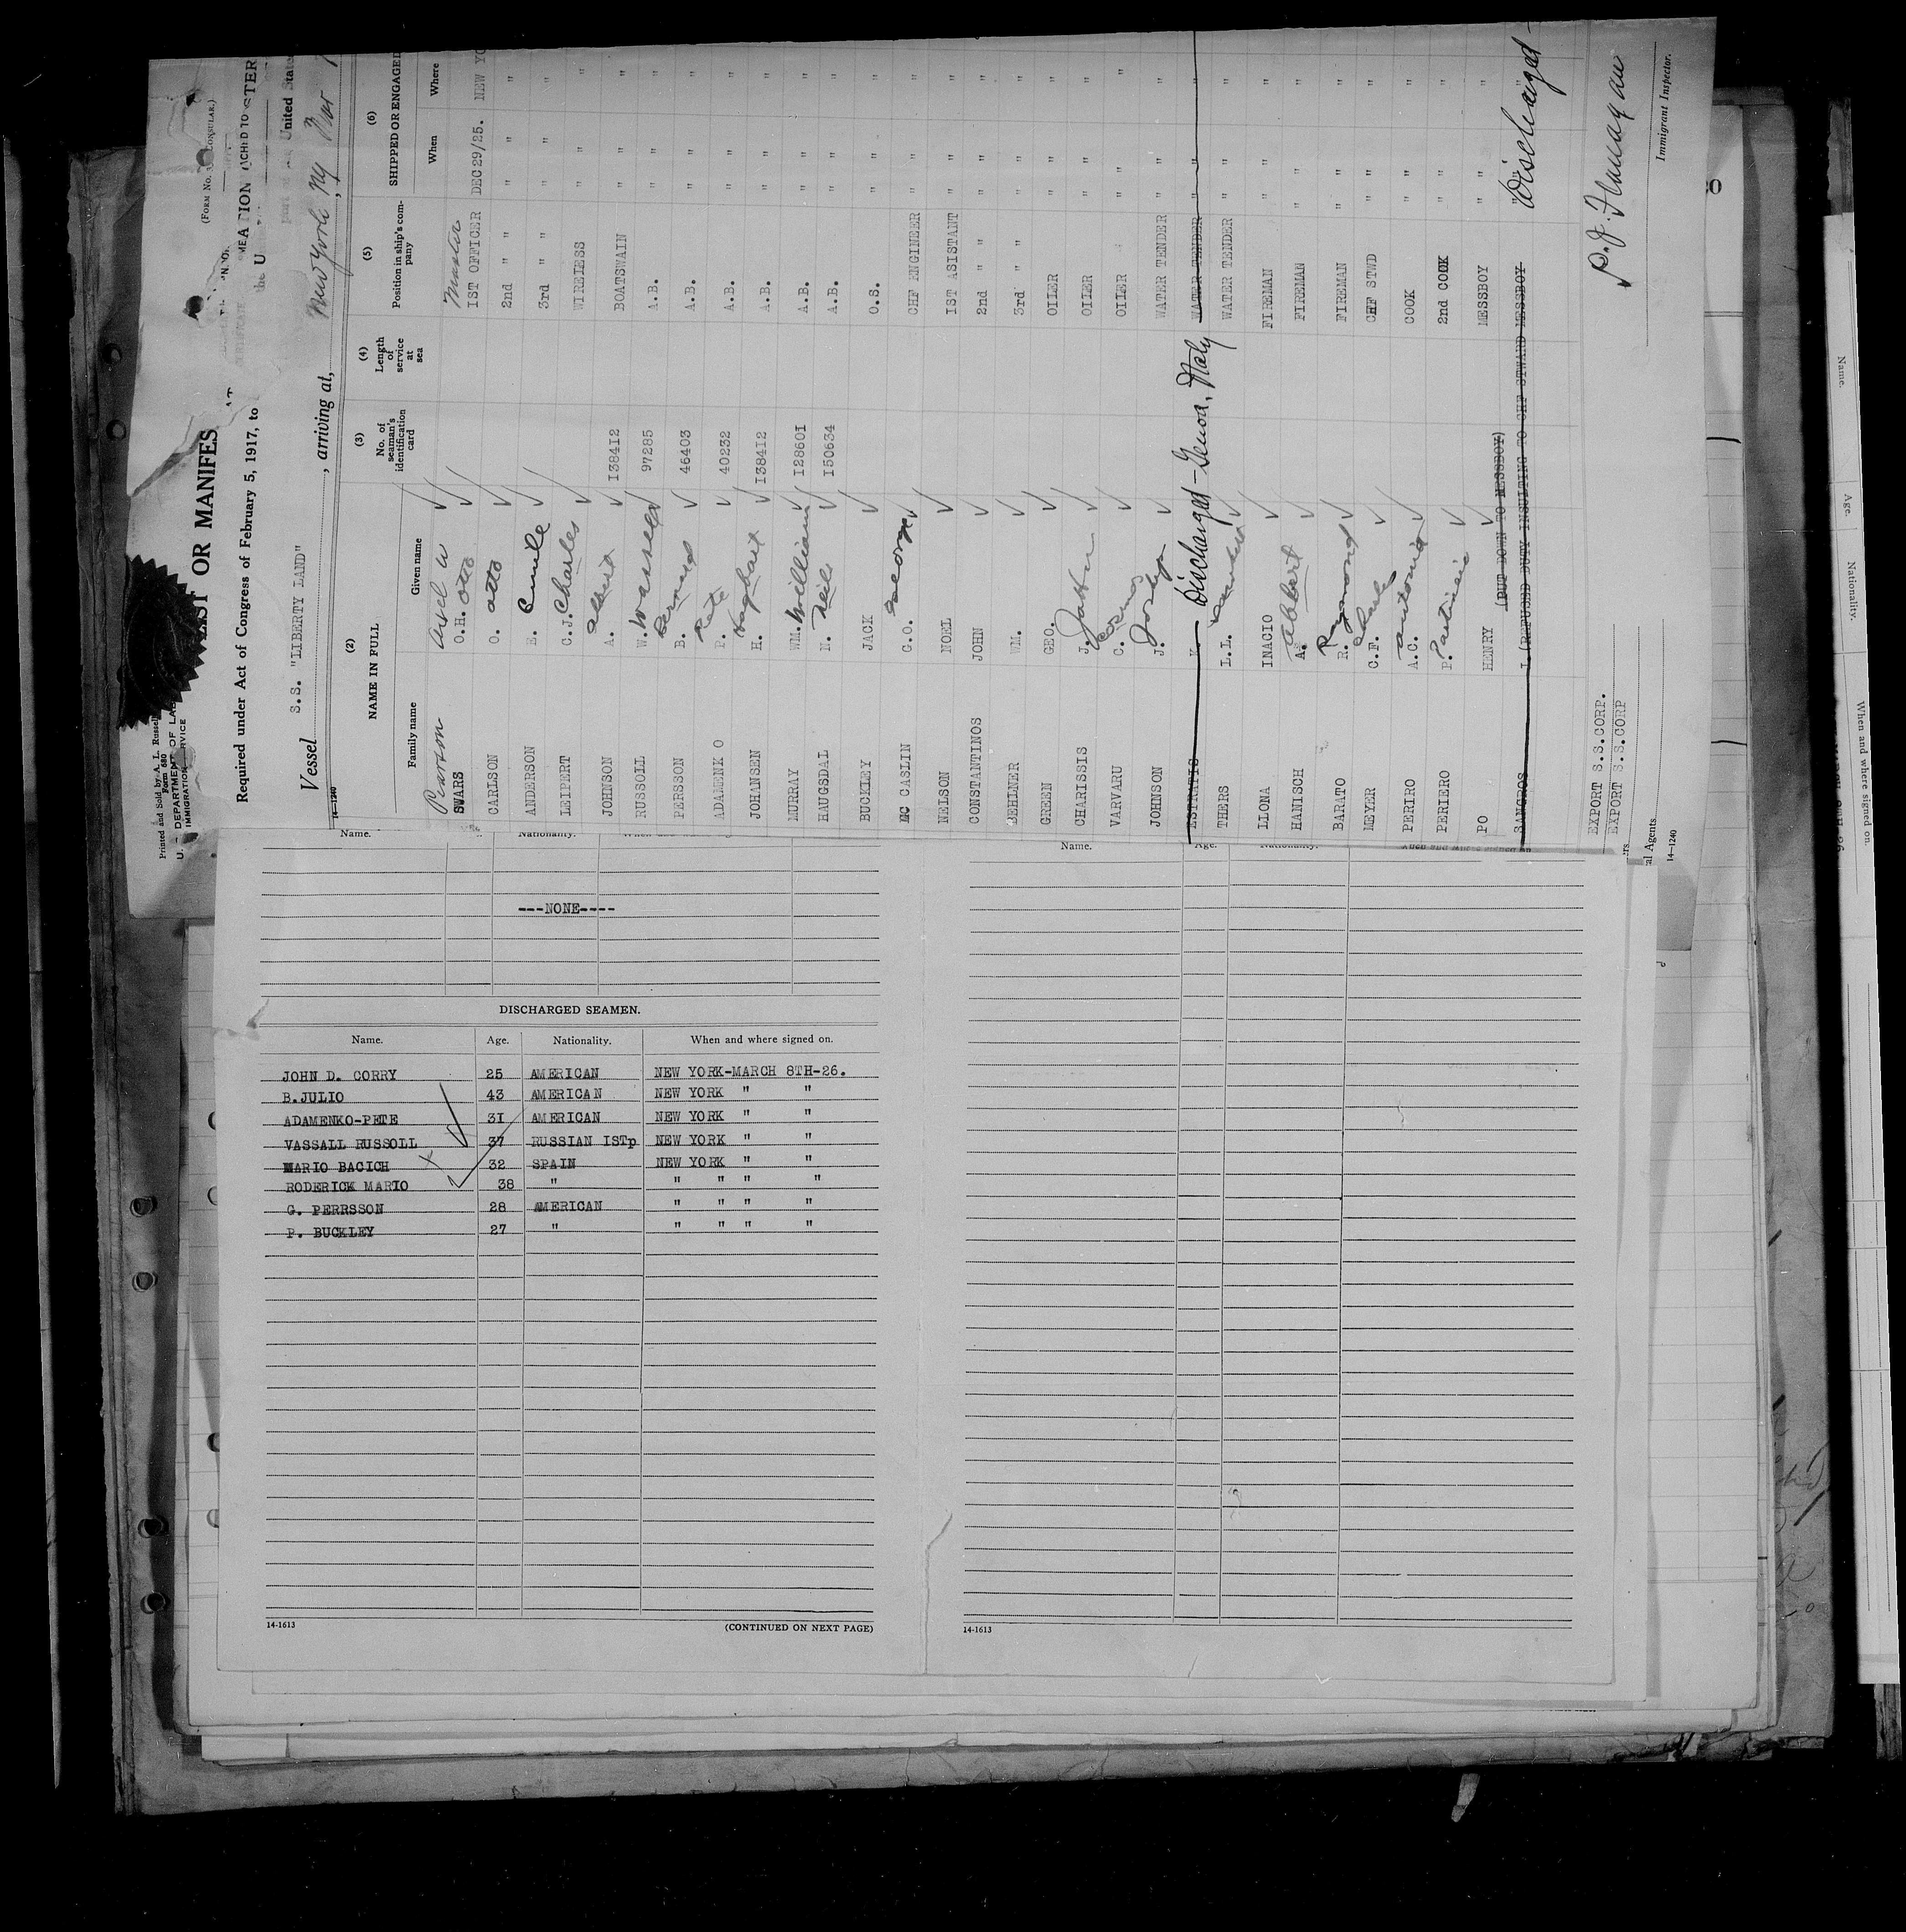 Printed and Sold by A. L. Russell
Form 680
U. DEPARTMENT OF LAB
IMMIGRATION SERVICE
(FORM No. CONSULAR.)
OR MANIFES
Required under Act of Congress of February 5, 1917, to
the U
United States
Vessel S.S. "LIBERTY LAND", arriving at, New York, NY
14-1240
(2) (3) (4) (5) (6)
NAME IN FULL No. of seaman's identification card Length of service at sea Position in ship's company SHIPPED OR ENGAGED
Family name Given name When Where
Pearson Axel W Master
SWARS O.H. Otto IST OFFICER DEC 29/25. NEW YO
CARLSON O. Otto 2nd " " " "
ANDERSON E. Emile 3rd " " "
LEIPERT C.J. Charles WIRELESS " " "
JOHNSON A. Albert I38412 BOATSWAIN " " "
RUSSOLL W. Wassell 97285 A.B. " " "
PERSSON B. Bernard 46403 A.B. " " "
ADAMENK O P. Pete 40232 A.B. " " "
JOHANSEN H. Haghart I38412 A.B. " " "
MURRAY WM. William I28601 A.B. " " "
HAUGSDAL N. Nels I50634 A.B. " " "
BUCKLEY JACK O.S. " " "
MC CASLIN G.O. George CHF ENGINEER " " "
NELSON NOEL IST ASISTANT " " "
CONSTANTINOS JOHN 2nd " " " " "
DEHLNER WM. 3rd " " " " "
GREEN GEO. OILER " " "
CHARISSIS J. John OILER " " "
VARVARU C. Cosmos OILER " " "
JOHNSON J. Joseph WATER TENDER " " "
ESTRATIS K. Discharged - Genoa, Italy WATER TENDER " " "
THERS L.L. WATER TENDER " " "
LLONA INACIO FIREMAN " " "
HANISCH A. Abbert FIREMAN " " "
BARATO R. Raymond FIREMAN " " "
MEYER C.F. Charles CHF STWD " " "
PERIRO A.C. Antonio COOK " " "
PERIERO P. 2nd COOK " " "
PO HENRY MESSBOY " " "
(PUT DOWN TO MESSBOY)
SANGROS I.(REFUSED DUTY INSULTING TO CHF STWARD MESSBOY Discharged -
EXPORT S.S.CORP.
EXPORT S.S.CORP
al Agents
14-1240
P. J. Flanagan
Immigrant Inspector.
Name. Nationality.
---NONE----
DISCHARGED SEAMEN.
Name. Age. Nationality. When and where signed on.
JOHN D. CORRY 25 AMERICAN NEW YORK-MARCH 8TH-26.
B.JULIO 43 AMERICAN NEW YORK " "
ADAMENKO-PETE 3I AMERICAN NEW YORK " "
VASSALL RUSSOLL 37 RUSSIAN ISTp NEW YORK " "
MARIO BACICH 32 SPAIN NEW YORK " "
RODERICK MARIO 38 " " " " "
G. PERRSSON 28 AMERICAN " " " "
P. BUCKLEY 27 " " " " "
14-1613 (CONTINUED ON NEXT PAGE)
Name. Age. Nationality.
14-1613
Name. Age. Nationality. When and where signed on.